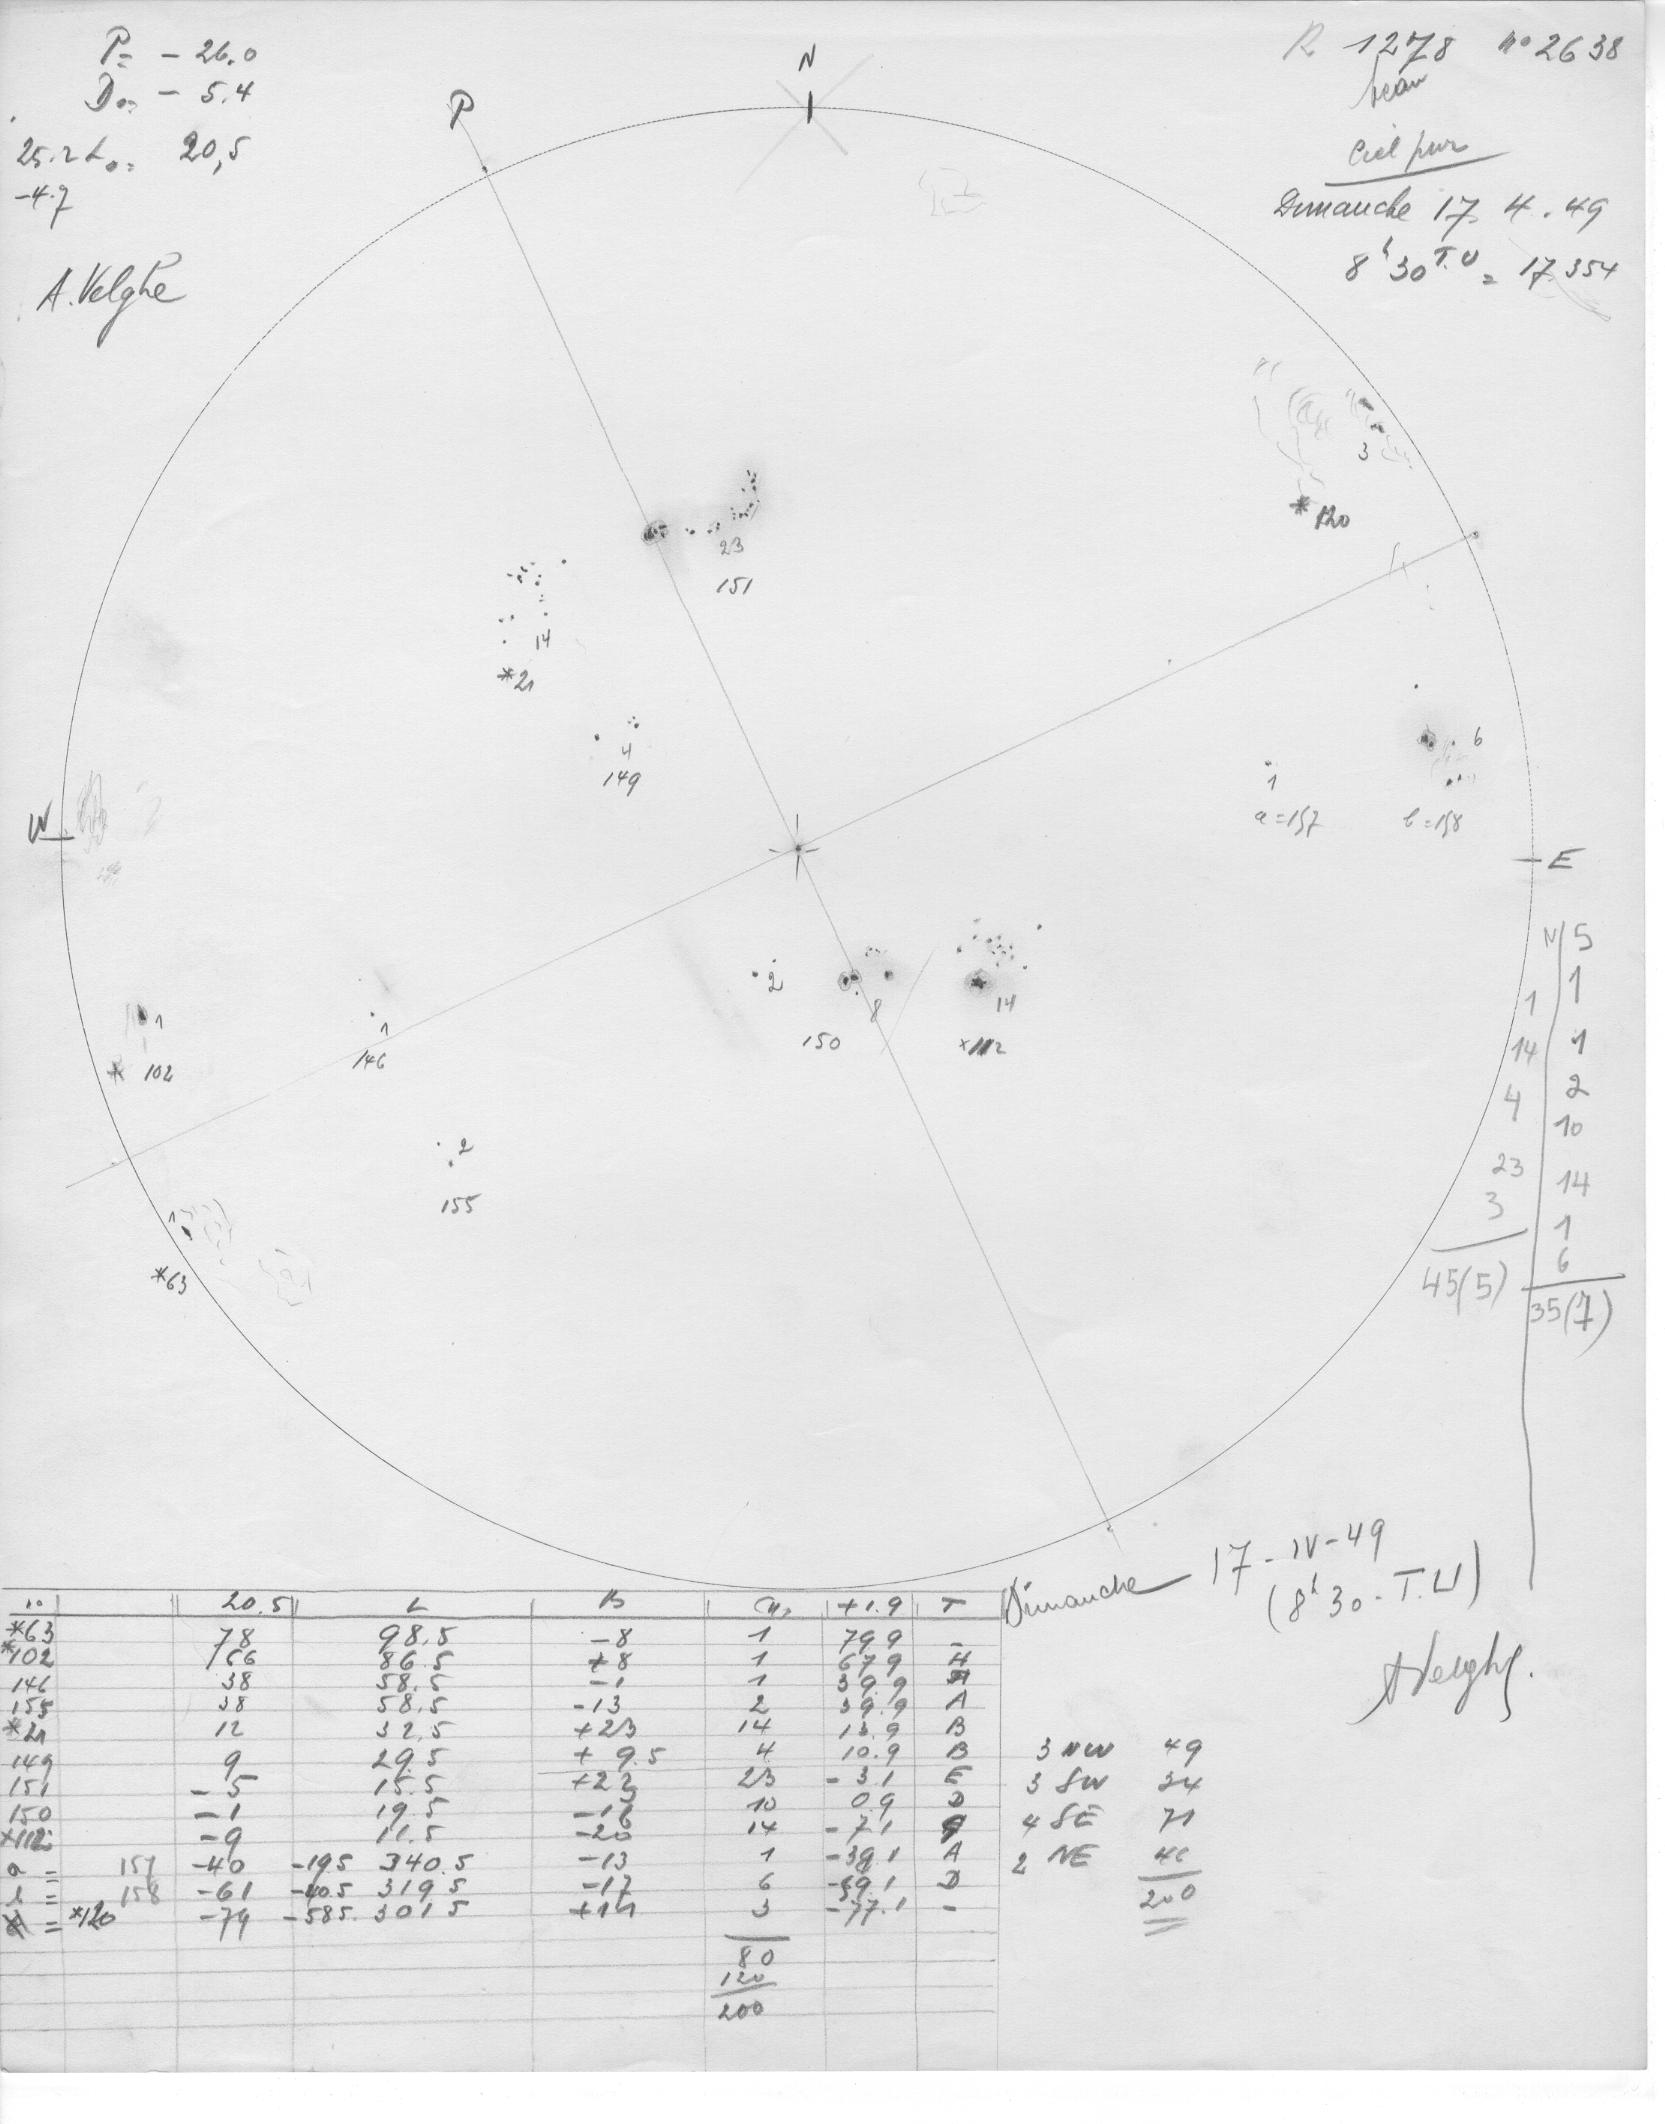 P= - 26.0
D₀= - 5.4
25.2 L₀= 20,5
-4.7
A. Velghe
N
P
R 1278 n° 2638
beau
Ciel pur
Dimanche 17. 4. 49
8ʰ30 T.U = 17.354
3
*120
23
151
14
*21
4
149
6
1
a=157
b=158
W
E
2
8
14
150
*112
1
*102
1
146
2
155
1
*63
N S
1
1
14 1
4 2
10
23 14
3 1
6
45(5) 35(7)
Dimanche 17-IV-49
(8ʰ30-T.U)
AVelghe.
n° 20.5 L B +1.9 T
*63 78 98.5 -8 1 79.9 -
*102 66 86.5 +8 1 67.9 H
146 38 58.5 -1 1 39.9 A
155 38 58,5 -13 2 39.9 A
*21 12 32.5 +23 14 13.9 B
149 9 29.5 +9.5 4 10.9 B
151 -5 15.5 +22 23 -3.1 E
150 -1 19.5 10 0.9 D
*112 -9 11.5 -20 14 -7.1
a = 157 -40 -19.5 340.5 -13 1 -38.1 A
b = 158 -61 -40.5 319.5 -17 6 -59.1 D
= *120 -79 -58.5 301.5 3 -77.1 -
80
120
200
3 NW 49
3 SW 34
4 SE 71
2 NE 46
200